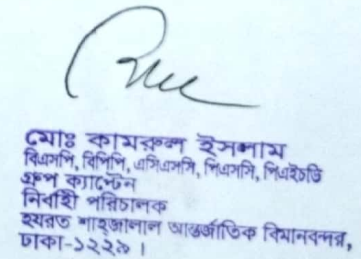 মোঃ কামরুল ইসলাম
বিএসপি, বিপিপি, এসিএসসি, পিএসসি, পিএইচডি
গ্রুপ ক্যাপ্টেন
নির্বাহী পরিচালক
হযরত শাহজালাল আন্তর্জাতিক বিমানবন্দর,
ঢাকা-১২২৯ ।